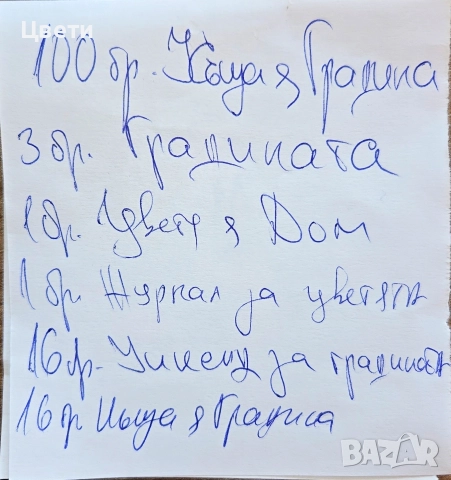 Цвети
100 бр. Къща & Градина
3 бр. Градината
1 бр. Цветя & Дом
1 бр. Журнал за цветята
16 бр. Уикенд за градината
16 бр Къща & Градина
BAZAR